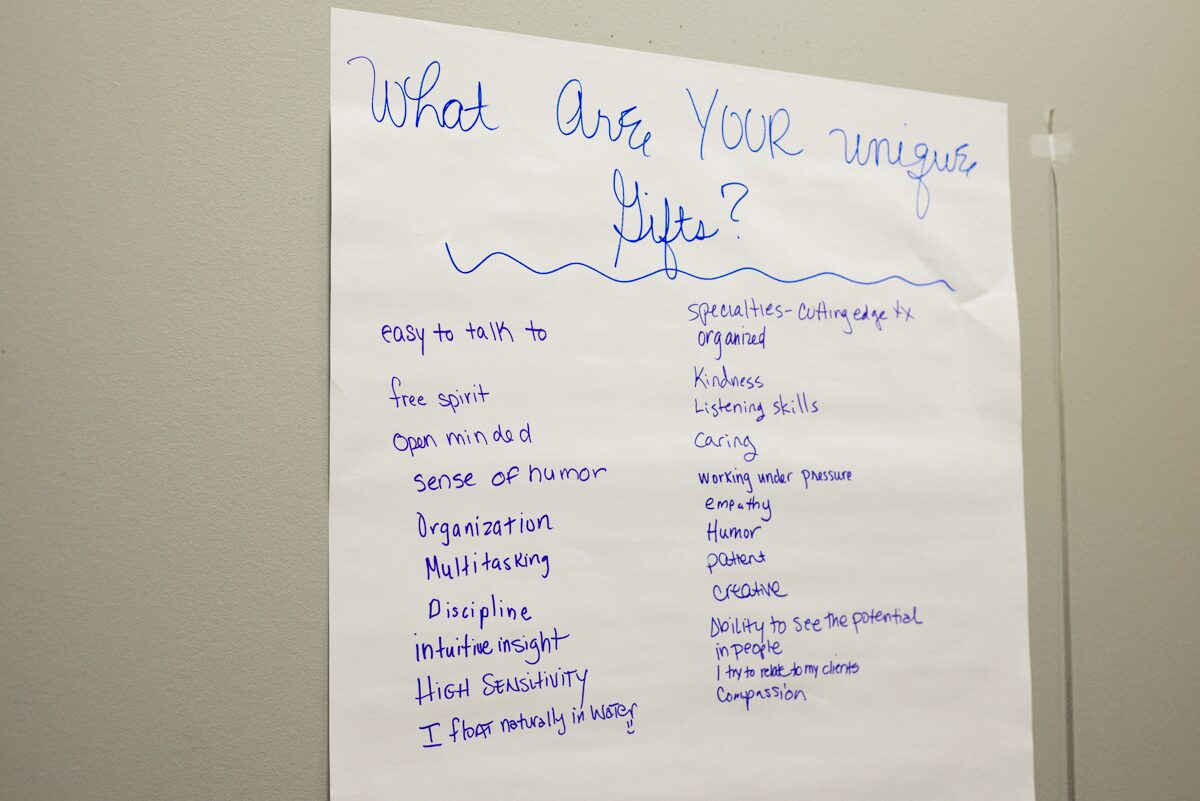 What Are YOUR unique
Gifts?
easy to talk to
free spirit
open minded
sense of humor
Organization
Multitasking
Discipline
intuitive insight
HIGH SENSITIVITY
I flOAT naturally in WATER
specialties- cutting edge tx
organized
Kindness
Listening skills
caring
working under pressure
empathy
Humor
patient
creative
Ability to see the potential
in people
I try to relate to my clients
Compassion